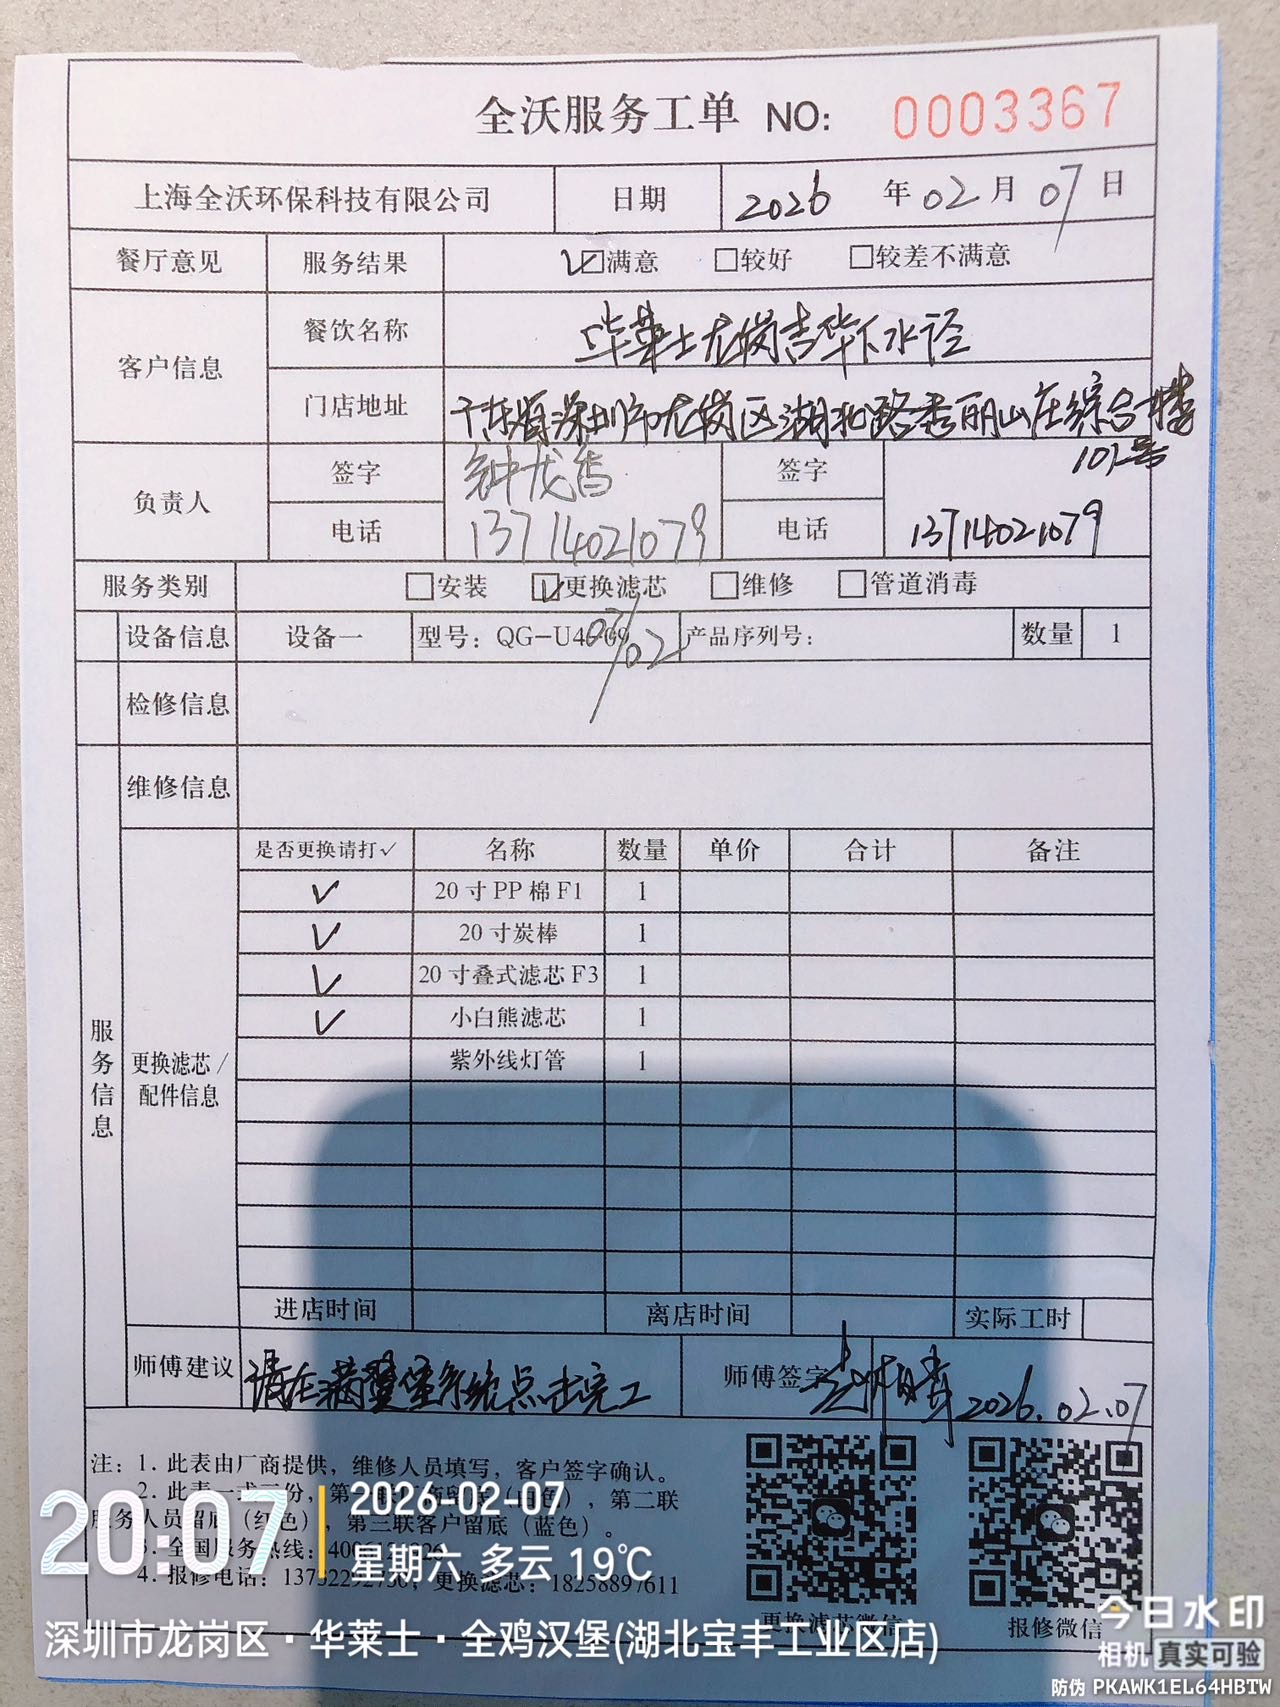 全沃服务工单 NO: 0003367
上海全沃环保科技有限公司 日期 2026 年 02 月 07 日
餐厅意见 服务结果 ☑满意 □较好 □较差不满意
客户信息 餐饮名称 华莱士龙岗吉华下水径
门店地址 广东省深圳市龙岗区湖北路秀丽山庄综合楼
101号
负责人 签字 钟龙香 签字
电话 13714021079 电话 13714021079
服务类别 □安装 ☑更换滤芯 □维修 □管道消毒
设备信息 设备一 型号：QG-U4 产品序列号： 数量 1
02/02
检修信息
维修信息
服务信息
更换滤芯/配件信息
是否更换请打✓ 名称 数量 单价 合计 备注
✓ 20寸PP棉F1 1
✓ 20寸炭棒 1
✓ 20寸叠式滤芯F3 1
✓ 小白熊滤芯 1
紫外线灯管 1
进店时间 离店时间 实际工时
师傅建议 请在 堡系统点击完工 师傅签字 2026.02.07
注：1. 此表由厂商提供，维修人员填写，客户签字确认。
2. 此表一式三份，第 （白色），第二联
服务人员留底（红色），第三联客户留底（蓝色）。
3. 全国服务热线：
4. 报修电话： 更换滤芯：18258897611
更换滤芯微信 报修微信
20:07 2026-02-07
星期六 多云 19℃
深圳市龙岗区·华莱士·全鸡汉堡(湖北宝丰工业区店)
今日水印
相机 真实可验
防伪 PKAWK1EL64HBTW